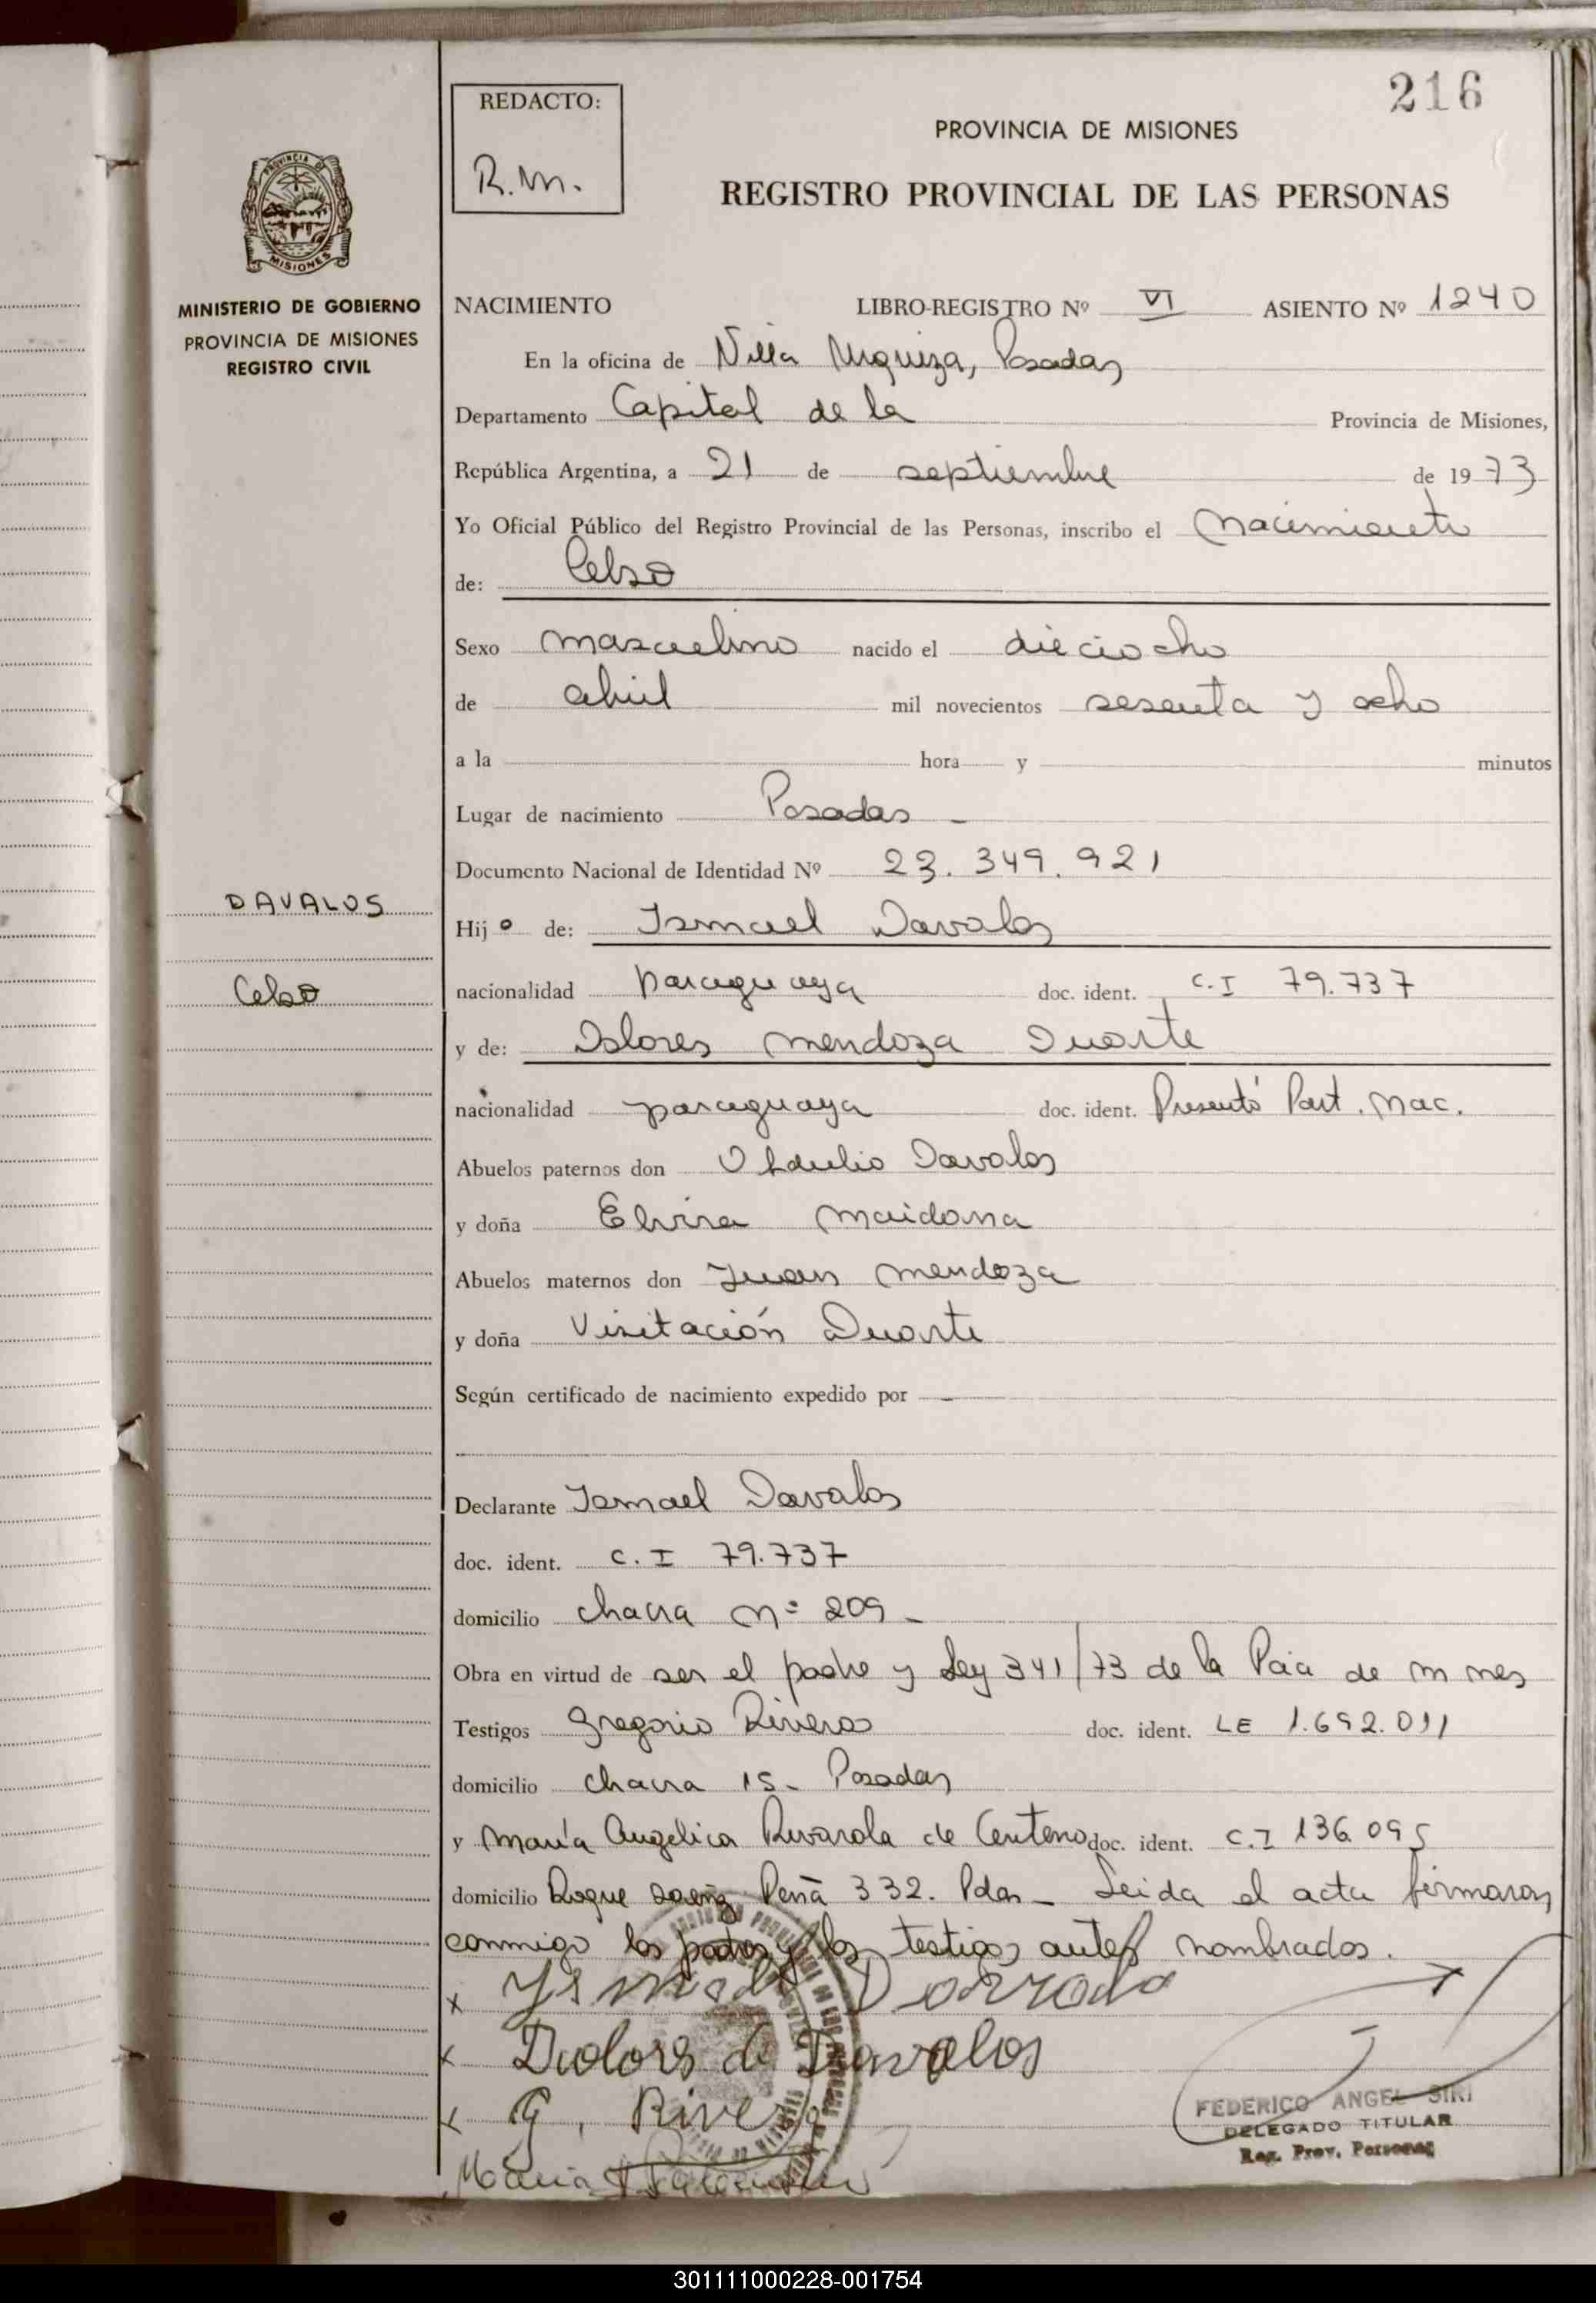 216
REDACTO:
R.M.
PROVINCIA DE MISIONES
REGISTRO PROVINCIAL DE LAS PERSONAS
PROVINCIA DE
MISIONES
MINISTERIO DE GOBIERNO
PROVINCIA DE MISIONES
REGISTRO CIVIL
NACIMIENTO LIBRO-REGISTRO Nº VI ASIENTO Nº 1240
En la oficina de Villa Urquiza, Posadas
Departamento Capital de la Provincia de Misiones,
República Argentina, a 21 de septiembre de 1973
Yo Oficial Público del Registro Provincial de las Personas, inscribo el nacimiento
de: Celso
Sexo masculino nacido el dieciocho
de abril mil novecientos sesenta y ocho
a la hora y minutos
Lugar de nacimiento Posadas -
Documento Nacional de Identidad Nº 23.349.921
DAVALOS
Celso
Hijo de: Ismael Davalos
nacionalidad paraguaya doc. ident. C.I 79.737
y de: Dolores Mendoza Duarte
nacionalidad paraguaya doc. ident. Presentó Part. Nac.
Abuelos paternos don Obdulio Davalos
y doña Elvira Maidana
Abuelos maternos don Juan Mendoza
y doña Visitación Duarte
Según certificado de nacimiento expedido por -
Declarante Ismael Davalos
doc. ident. C.I 79.737
domicilio chacra n= 209 -
Obra en virtud de ser el padre y Ley 341/73 de la Pcia de Mnes
Testigos Gregorio Riveros doc. ident. LE 1.692.011
domicilio chacra 15- Posadas
y María Angelica Rivarola de Centeno doc. ident. C.I 136.095
domicilio Roque Saenz Peña 332. Pdas - Leida el acta firmaron
conmigo los padres y los testigos antes nombrados.
x
x Dolors de Davalos
x G. Rivero
Maria
FEDERICO ANGEL SIRI
DELEGADO TITULAR
Reg. Prov. Personas
301111000228-001754